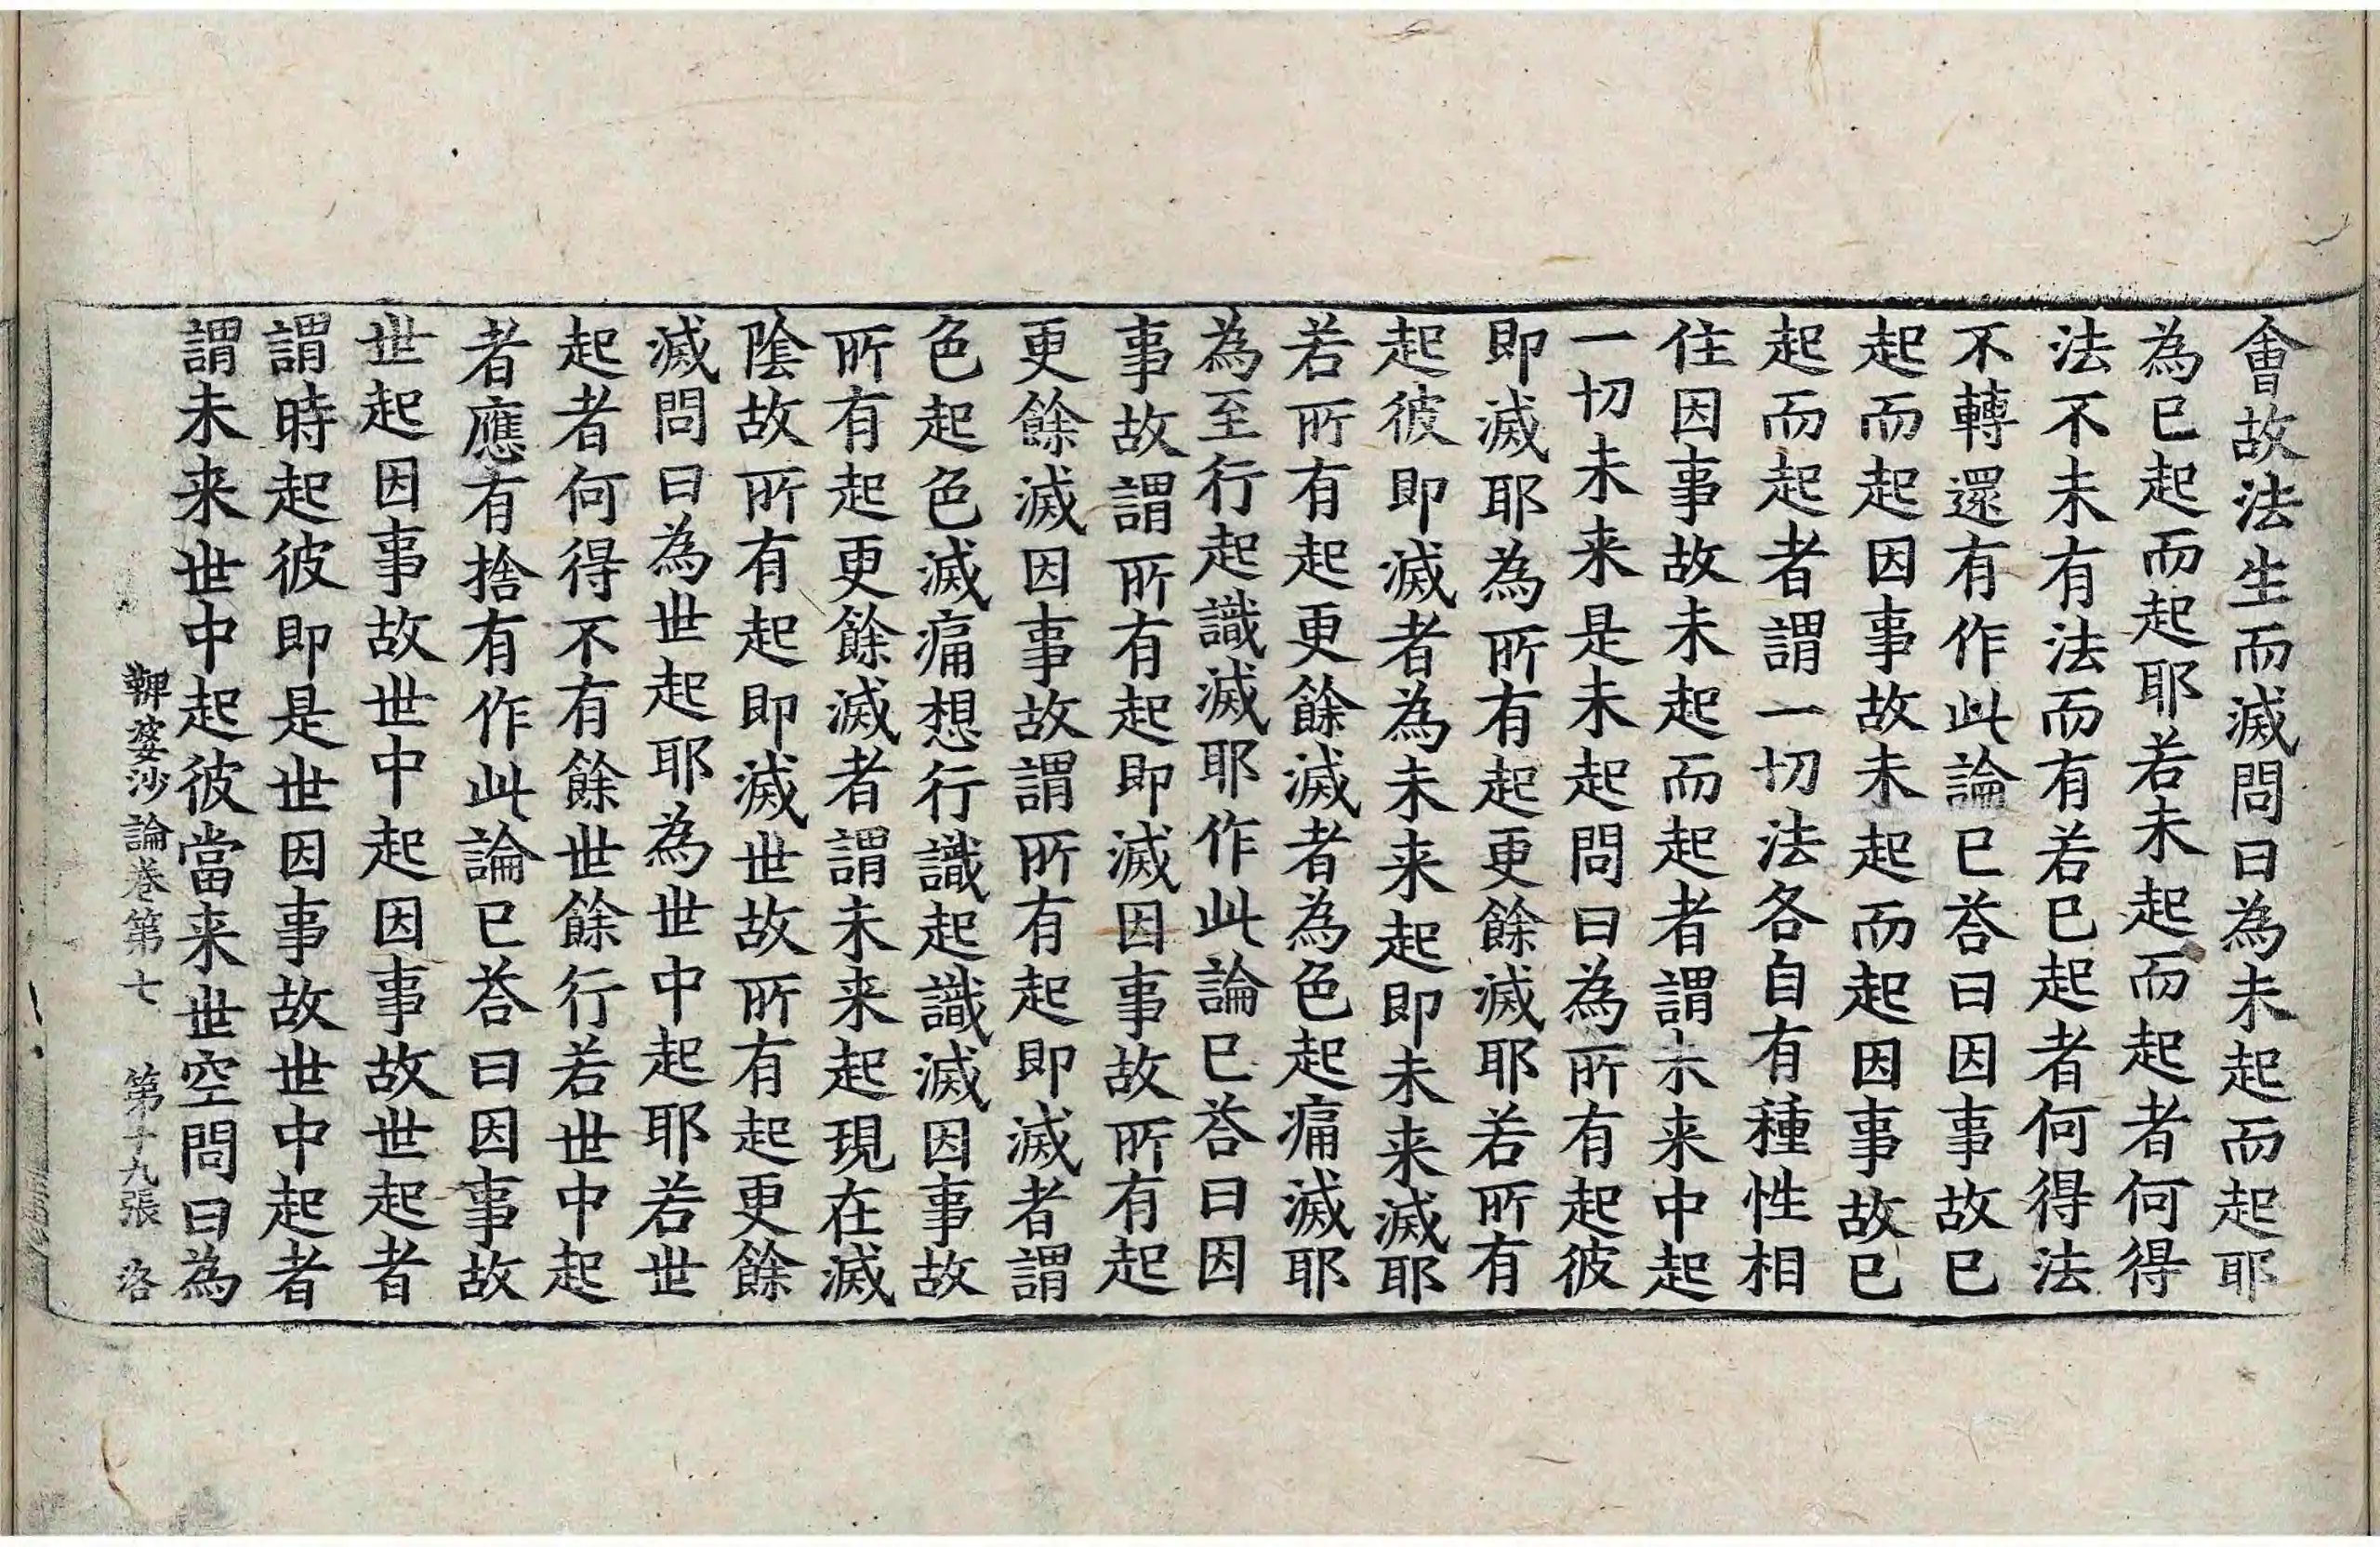 會故法生而滅問曰為未起而起耶
為已起而起耶若未起而起者何得
法不未有法而有若已起者何得法
不轉還有作此論已荅曰因事故已
起而起因事故未起而起因事故已
起而起者謂一切法各自有種性相
住因事故未起而起者謂未来中起
一切未来是未起問曰為所有起彼
即滅耶為所有起更餘滅耶若所有
起彼即滅者為未来起即未来滅耶
若所有起更餘滅者為色起痛滅耶
為至行起識滅耶作此論已荅曰因
事故謂所有起即滅因事故所有起
更餘滅因事故謂所有起即滅者謂
色起色滅痛想行識起識滅因事故
所有起更餘滅者謂未来起現在滅
陰故所有起即滅世故所有起更餘
滅問曰為世起耶為世中起耶若世
起者何得不有餘世餘行若世中起
者應有捨有作此論已荅曰因事故
世起因事故世中起因事故世起者
謂時起彼即是世因事故世中起者
謂未来世中起彼當来世空問曰為
鞞婆沙論卷第七　第十九張　洛